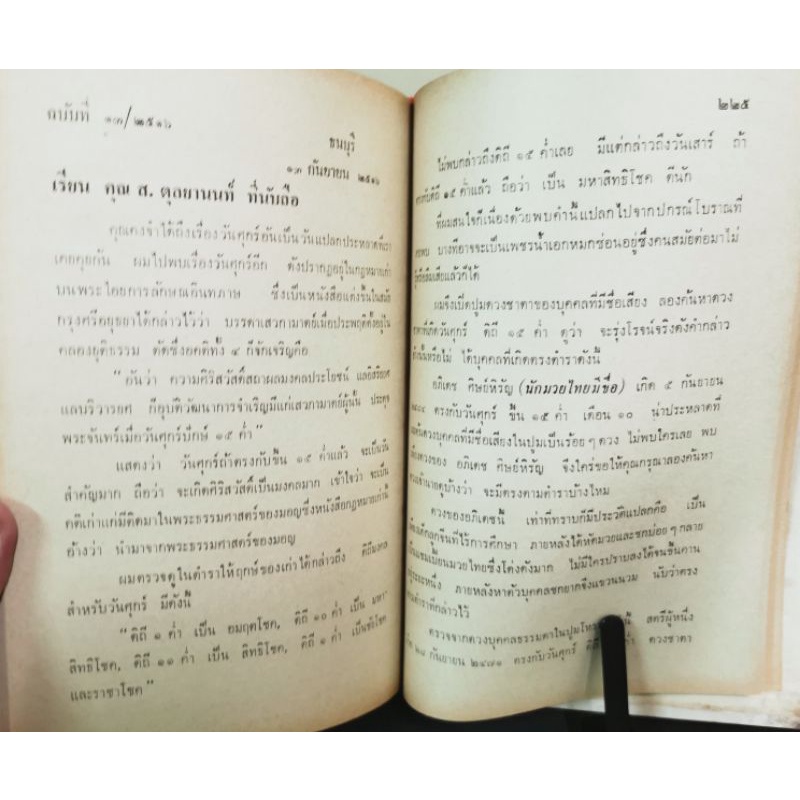 ฉบับที่ ๑๗/๒๕๑๖
ธนบุรี
๑๓ กันยายน ๒๕๑๖
เรียน คุณ ส. ตุลยานนท์ ที่นับถือ
คุณคงจำได้ถึงเรื่องวันศุกร์อันเป็นวันแปลกประหลาดที่เรา
เคยคุยกัน ผมไปพบเรื่องวันศุกร์อีก ดังปรากฏอยู่ในกฎหมายเก่า
บนพระไอยการลักษณอินทภาษ ซึ่งเป็นหนังสือแต่งขึ้นในสมัย
กรุงศรีอยุธยาได้กล่าวไว้ว่า บรรดาเสวกามาตย์เมื่อประพฤติตั้งอยู่ใน
คลองยุติธรรม ตัดซึ่งอคติทั้ง ๔ ก็จักเจริญคือ
"อันว่า ความศิริสวัสดิ์สถาผลมงคลประโยชน์ และอิศริยยศ
แลบริวารยศ ก็อุบติวัฒนาการจำเริญมีแก่เสวกามาตย์ผู้นั้น ประดุจ
พระจันทร์เมื่อวันศุกร์ปักษ์ ๑๕ ค่ำ"
แสดงว่า วันศุกร์ถ้าตรงกับขึ้น ๑๕ ค่ำแล้ว จะเป็นวัน
สำคัญมาก ถือว่า จะเกิดศิริสวัสดิ์เป็นมงคลมาก เข้าใจว่า จะเป็น
คติเก่าแก่มีติดมาในพระธรรมศาสตร์ของมอญซึ่งหนังสือกฎหมายเก่านี้
อ้างว่า นำมาจากพระธรรมศาสตร์ของมอญ
ผมตรวจดูในตำราให้ฤกษ์ของเก่าได้กล่าวถึง ดิถีมงคล
สำหรับวันศุกร์ มีดังนี้
"ดิถี ๑ ค่ำ เป็น อมฤตโชค, ดิถี ๑๐ ค่ำ เป็น มหา
สิทธิโชค, ดิถี ๑๑ ค่ำ เป็น สิทธิโชค, ดิถี ๑ ค่ำ เป็นชัยโชค
และราชาโชค"
๒๒๕
ไม่พบกล่าวถึงดิถี ๑๕ ค่ำเลย มีแต่กล่าวถึงวันเสาร์ ถ้า
ตรงกับดิถี ๑๕ ค่ำแล้ว ถือว่า เป็น มหาสิทธิโชค ดีนัก
ที่ผมสนใจก็เนื่องด้วยพบคำนี้แปลกไปจากปกรณ์โบราณที่
เคยพบ บางทีอาจจะเป็นเพชรน้ำเอกหมกซ่อนอยู่ซึ่งคนสมัยต่อมาไม่
เสียแล้วก็ได้
ผมจึงเปิดปูมดวงชาตาของบุคคลที่มีชื่อเสียง ลองค้นหาดวง
ชาตาที่เกิดวันศุกร์ ดิถี ๑๕ ค่ำ ดูว่า จะรุ่งโรจน์จริงดังคำกล่าว
หรือไม่ ได้บุคคลที่เกิดตรงตำราดังนี้
อภิเดช ศิษย์หิรัญ (นักมวยไทยมีชื่อ) เกิด ๕ กันยายน
ตรงกับวันศุกร์ ขึ้น ๑๕ ค่ำ เดือน ๑๐ น่าประหลาดที่
ค้นดวงบุคคลที่มีชื่อเสียงในปูมเป็นร้อยๆ ดวง ไม่พบใครเลย พบ
ดวงของ อภิเดช ศิษย์หิรัญ จึงใคร่ขอให้คุณกรุณาลองค้นหา
ดูบ้างว่า จะมีตรงตามตำราบ้างไหม
ดวงของอภิเดชนี้ เท่าที่ทราบก็มีประวัติแปลกคือ เป็น
ไร้การศึกษา ภายหลังได้หัดมวยและชกบ่อยๆ กลาย
เป็นแชมเปี้ยนมวยไทยซึ่งโด่งดังมาก ไม่มีใครปราบลงได้จนขึ้นคาน
อยู่ระยะหนึ่ง ภายหลังหาตัวบุคคลชกยากจึงแขวนนวม นับว่าตรง
ตามตำราที่กล่าวไว้
ตรวจจากดวงบุคคลธรรมดาในปูมโหร สตรีผู้หนึ่ง
๒๘ กันยายน ๒๔๗๑ ตรงกับวันศุกร์ ค่ำ ดวงชาตา